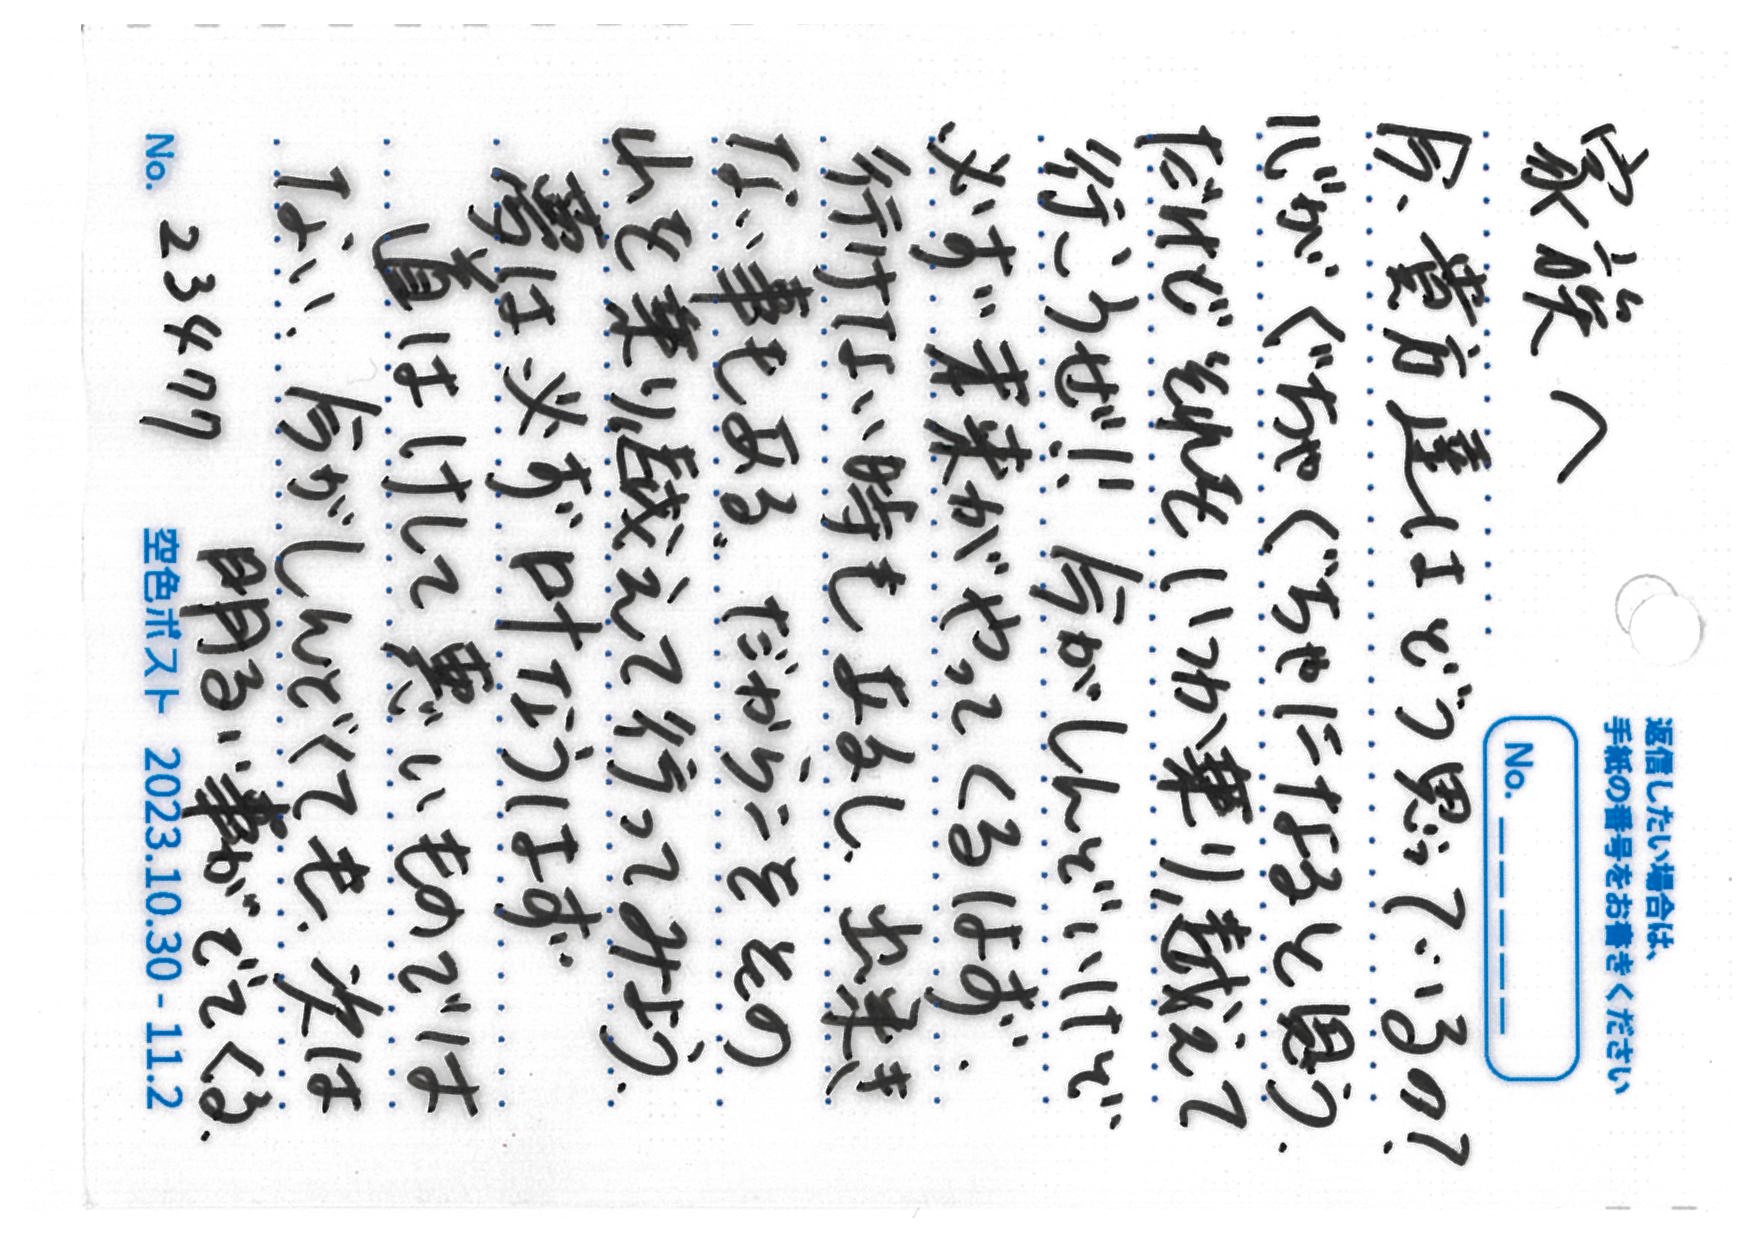 返信したい場合は、
手紙の番号をお書きください
No. _ _ _ _ _
家族へ
今、貴方達はどう思っているの?
心がぐちゃぐちゃになると思う.
だけどそれをいつか乗り越えて
行こうぜ!! 今がしんどいけど
必ず未来がやってくるはず.
行けない時もあるし、出来き
ない事もある。だからこそその
山を乗り越えて行ってみよう.
夢は必ず叶なうはず
道はけして悪いものでは
ない、今がしんどくても、次は
明るい事がでてくる.
No. 23477
空色ポスト 2023.10.30 - 11.2